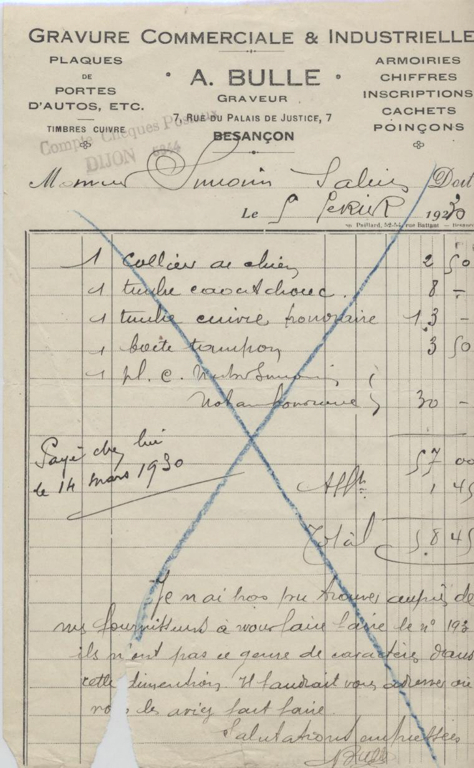 GRAVURE COMMERCIALE & INDUSTRIELLE
PLAQUES
DE
PORTES
D'AUTOS, ETC.
TIMBRES CUIVRE
A. BULLE
GRAVEUR
7, RUE DU PALAIS DE JUSTICE, 7
BESANÇON
ARMOIRIES
CHIFFRES
INSCRIPTIONS
CACHETS
POINÇONS
Compte Chèques Postaux
DIJON
Monsieur Simonin Salins
Le 5 FEVRIER 1930
1 collier de chien 2 50
1 timbre caoutchouc. 8 -
1 timbre cuivre honoraire 13 -
1 boîte tampon 3 50
1 pl. c.
30 -
57 00
Payé chez lui
le 14 mars 1930
Affr 1 45
Total 58 45
Je n'ai pas pu trouver auprès de
mes fournisseurs à vous faire faire le n° 193
ils n'ont pas ce genre de caractères dans
cette dimention. Il faudrait vous adresser où
vous les aviez fait faire.
Salutations empressées
ABulle